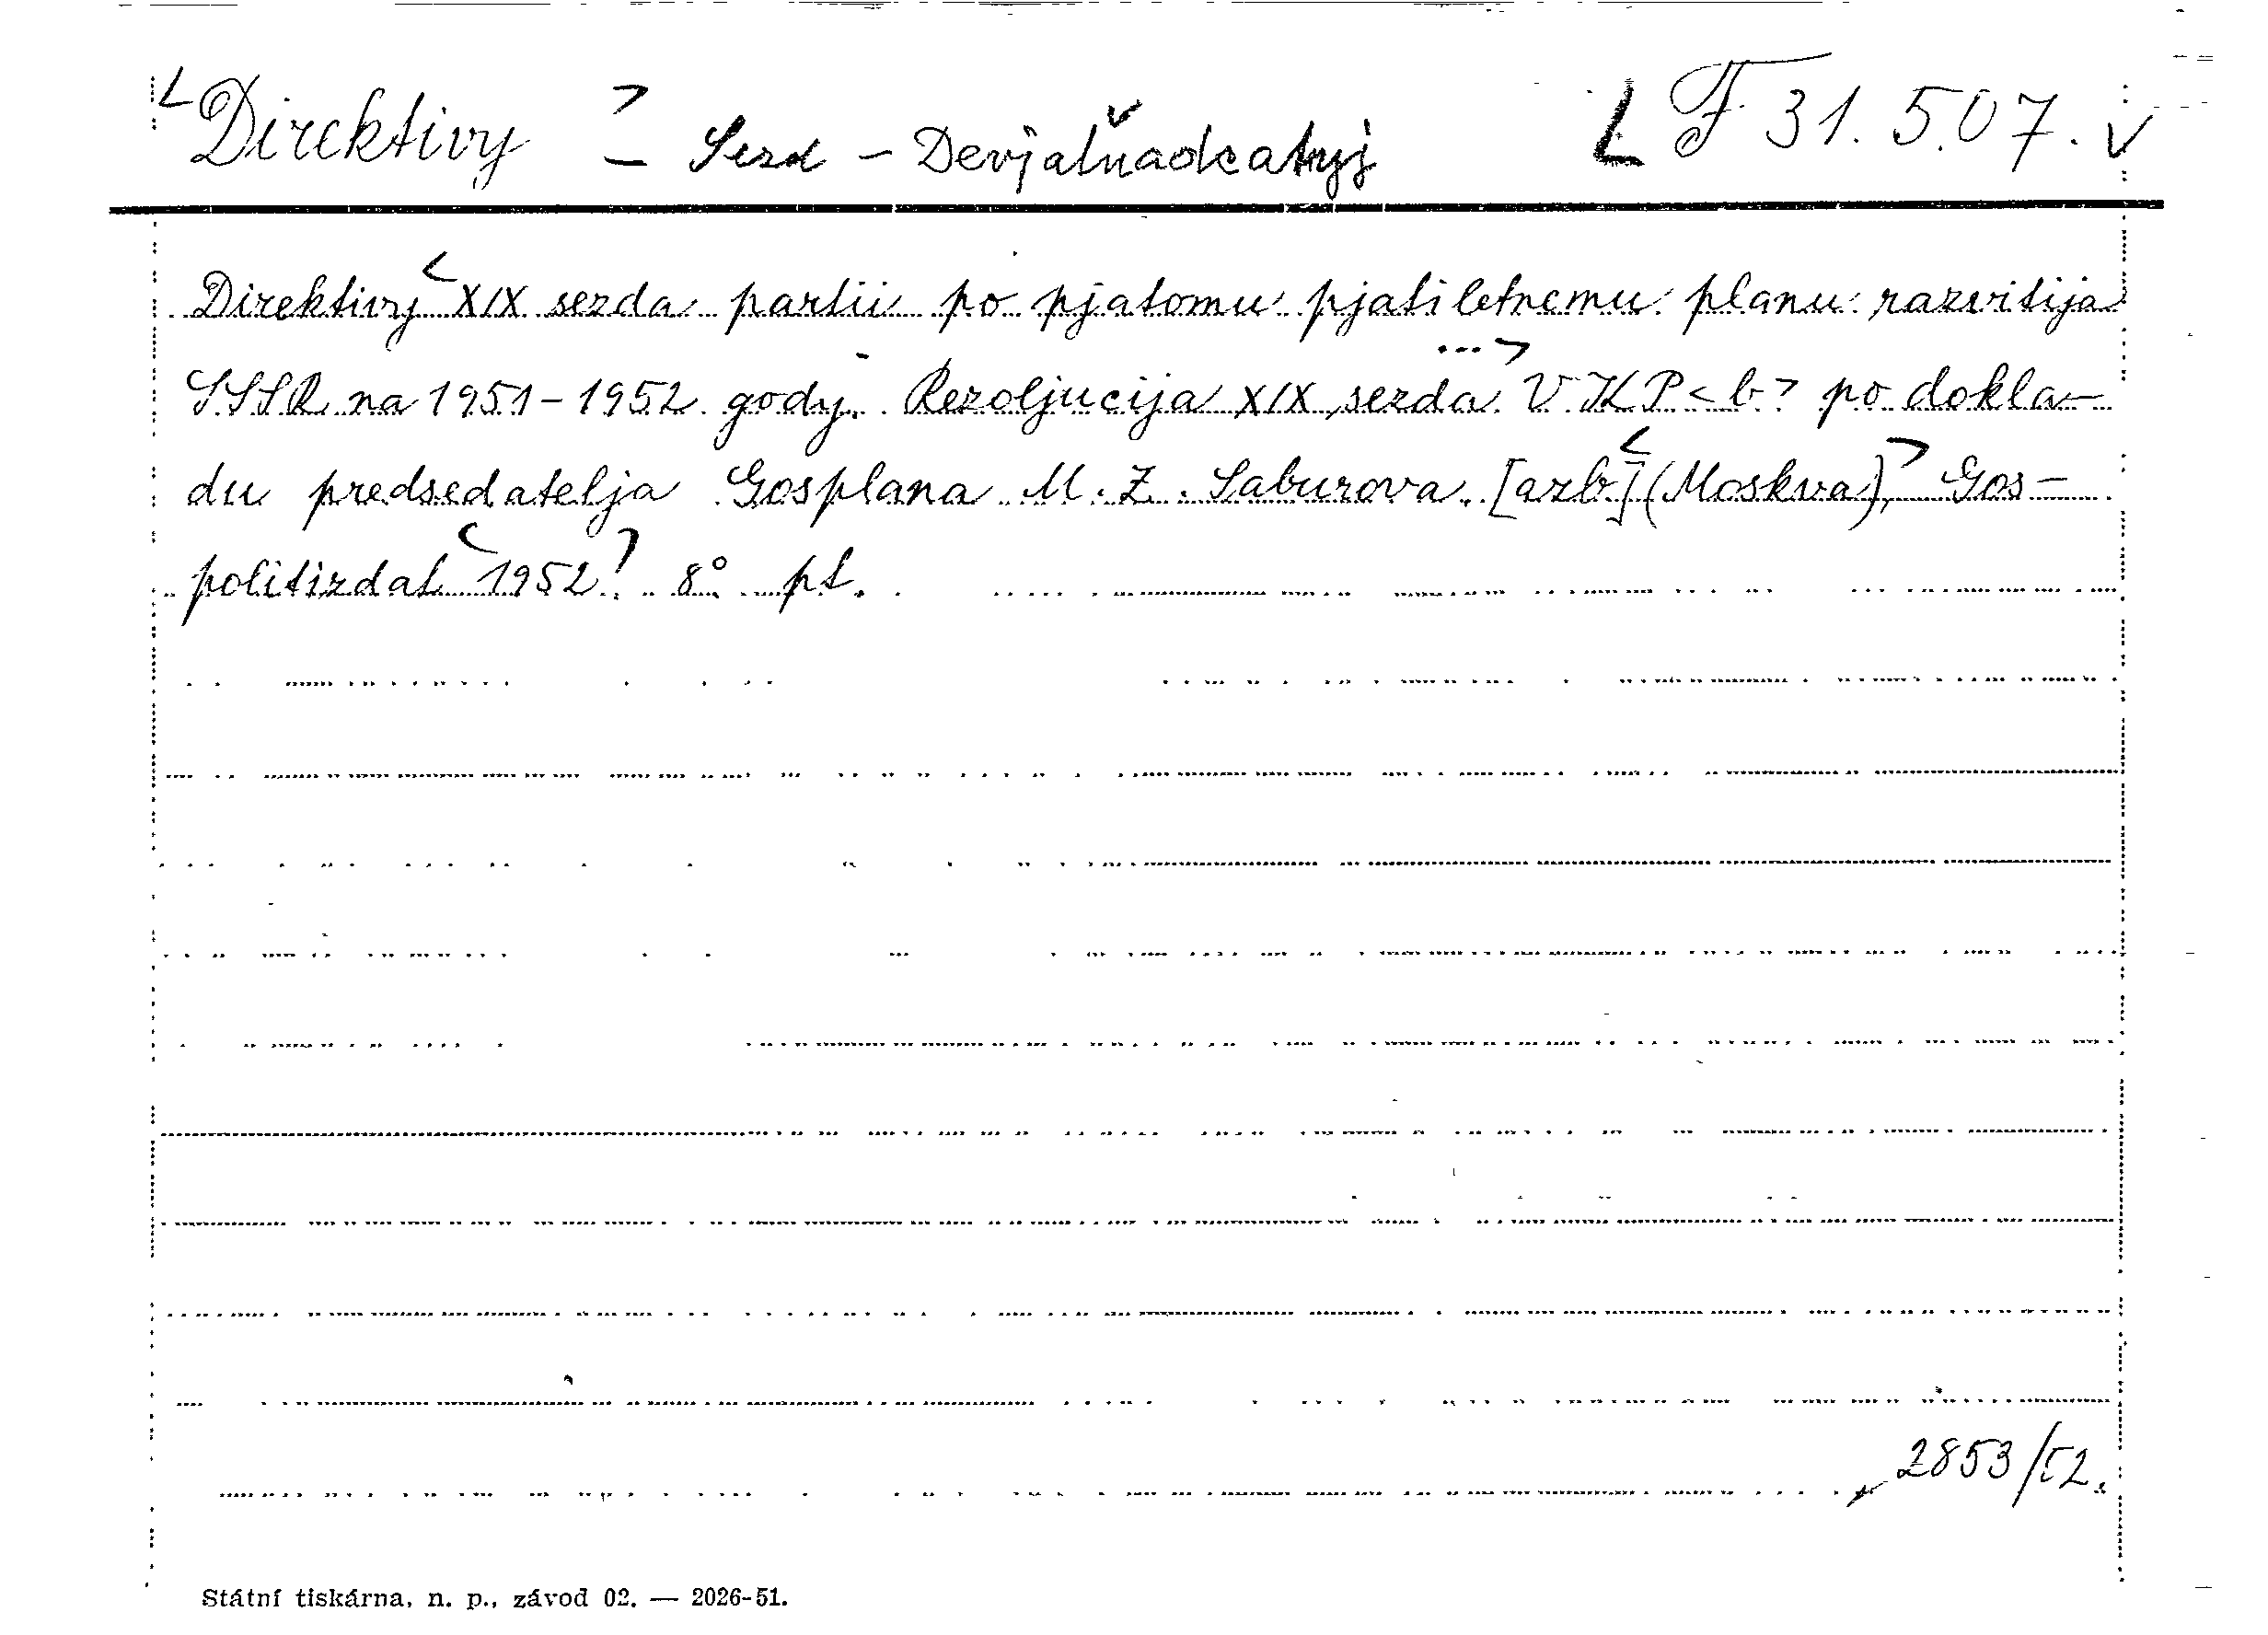 Direktivy - Sezd - Devjatňadcatyj F 31.507.
Direktivy XIX sezda partii po pjatomu pjatiletnemu planu razvitija
SSSR na 1951-1952 gody. Rezoljucija XIX sezda VKP<b> po dokla-
du predsedatelja Gosplana M. Z. Saburova. [azb] (Moskva), Gos-
politizdat 1952. 8° pt.
2853/52.
Státní tiskárna, n. p., závod 02. — 2026-51.